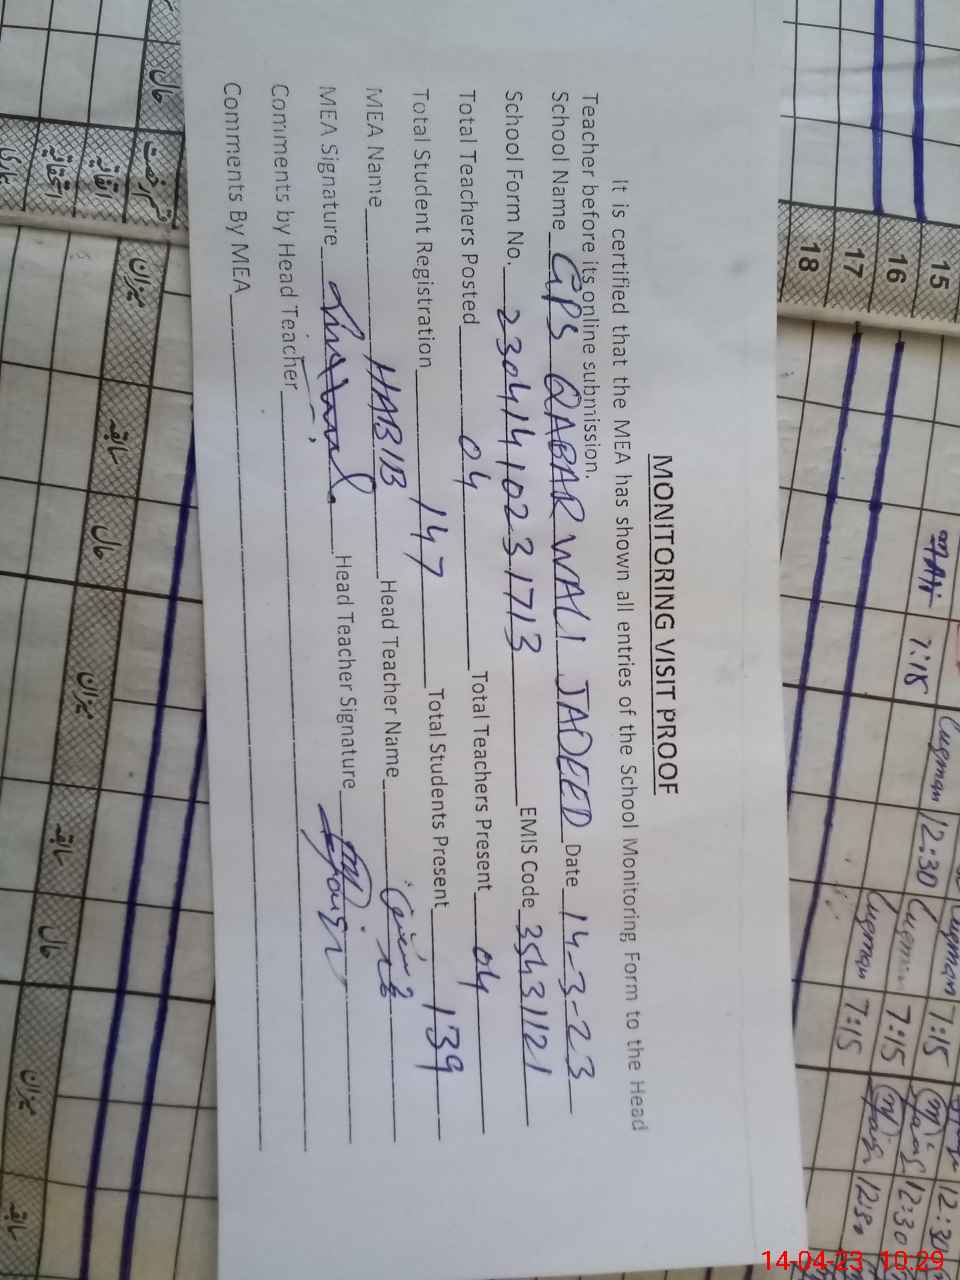 MONITORING VISIT PROOF
It is certified that the MEA has shown all entries of the School Monitoring Form to the Head
Teacher before its online submission.
School Name GPS QABAR WALI JADEED Date 14-3-23
School Form No. 23041410231713 EMIS Code 35431121
Total Teachers Posted 04 Total Teachers Present 04
Total Student Registration 147 Total Students Present 139
MEA Name HABIB Head Teacher Name
MEA Signature Head Teacher Signature
Comments by Head Teacher
Comments By MEA
15
16
17
18
7:15
Luqman 12:30 Luqman 7:15
Luqman 7:15 12:30
Luqman 7:15
12:30
حال
میزان
سابقہ
حال
میزان
سابقہ
حال
میزان
سابقہ
14-04-23 10:29